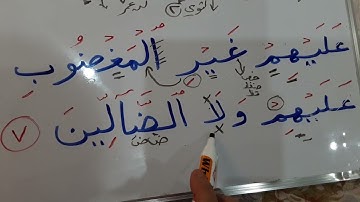 عَلَيْهِمْ غَيْرِ الْمَغْضُوبِ
عَلَيْهِمْ وَلَا الضَّالِّينَ ٧